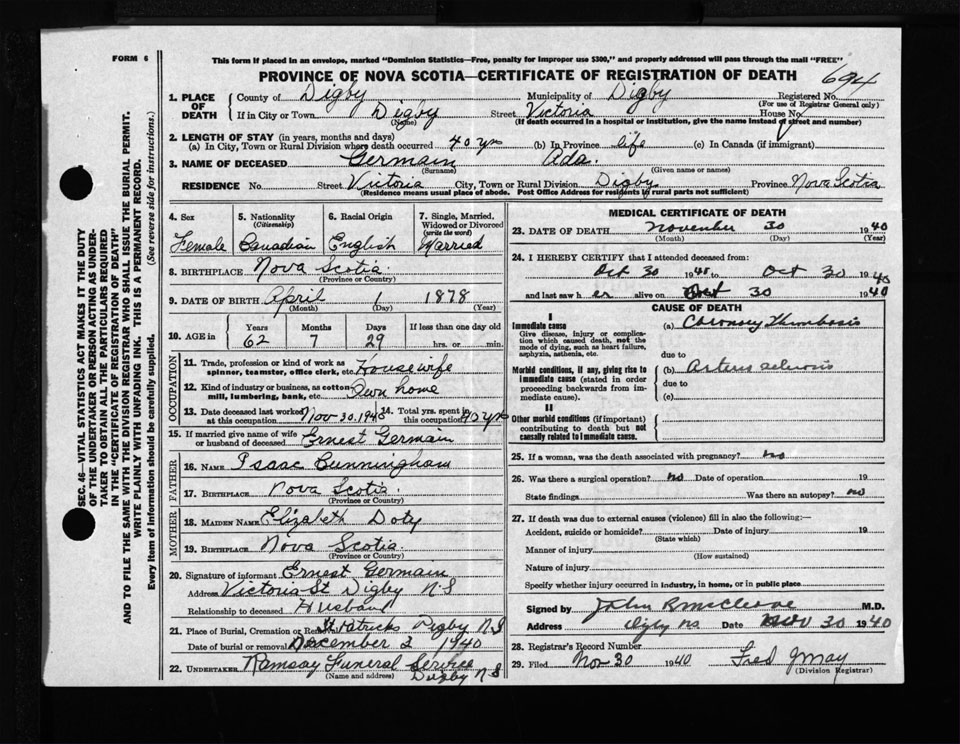 FORM 6
This form if placed in an envelope, marked "Dominion Statistics—Free, penalty for improper use $300," and properly addressed will pass through the mail "FREE"
PROVINCE OF NOVA SCOTIA—CERTIFICATE OF REGISTRATION OF DEATH 694
1. PLACE OF DEATH { County of Digby Municipality of Digby Registered No.
(For use of Registrar General only)
If in City or Town Digby Street Victoria House No.
(Name) (If death occurred in a hospital or institution, give the name instead of street and number)
2. LENGTH OF STAY (in years, months and days)
(a) In City, Town or Rural Division where death occurred 40 yrs (b) In Province life (c) In Canada (if immigrant)
3. NAME OF DECEASED Germain Ada.
(Surname) (Given name or names)
RESIDENCE No. Street Victoria City, Town or Rural Division Digby Province Nova Scotia
(Residence means usual place of abode. Post Office Address for residents of rural parts not sufficient)
4. Sex 5. Nationality (Citizenship) 6. Racial Origin 7. Single, Married, Widowed or Divorced (write the word)
Female Canadian English Married
8. BIRTHPLACE Nova Scotia
(Province or Country)
9. DATE OF BIRTH April 1 1878
(Month) (Day) (Year)
10. AGE in Years Months Days If less than one day old
62 7 29 hrs. or min.
OCCUPATION
11. Trade, profession or kind of work as spinner, teamster, office clerk, etc. Housewife
12. Kind of industry or business, as cotton mill, lumbering, bank, etc. Own home
13. Date deceased last worked at this occupation Nov 30, 1940 14. Total yrs. spent in this occupation 40 yrs
15. If married give name of wife or husband of deceased Ernest Germain
FATHER
16. NAME Isaac Cunningham
17. BIRTHPLACE Nova Scotia
(Province or Country)
MOTHER
18. MAIDEN NAME Elizabeth Doty
19. BIRTHPLACE Nova Scotia.
(Province or Country)
20. Signature of informant Ernest Germain
Address Victoria St Digby N.S
Relationship to deceased Husband
21. Place of Burial, Cremation or Removal St Patricks Digby N.S
Date of burial or removal December 2 1940
22. UNDERTAKER Ramsay Funeral Service
(Name and address) Digby N.S
MEDICAL CERTIFICATE OF DEATH
23. DATE OF DEATH November 30 1940
(Month) (Day) (Year)
24. I HEREBY CERTIFY that I attended deceased from:
Oct 30 1940 to Oct 30 1940
and last saw her alive on Oct 30 1940
CAUSE OF DEATH
I
Immediate cause (a) Coronary Thrombosis
Give disease, injury or complication which caused death, not the mode of dying, such as heart failure, asphyxia, asthenia, etc.
due to
Morbid conditions, if any, giving rise to immediate cause (stated in order proceeding backwards from immediate cause).
(b) Arterio sclerosis
due to
(c)
II
Other morbid conditions (if important) contributing to death but not causally related to immediate cause.
25. If a woman, was the death associated with pregnancy? no
26. Was there a surgical operation? no Date of operation 19
State findings Was there an autopsy? no
27. If death was due to external causes (violence) fill in also the following:—
Accident, suicide or homicide? Date of injury 19
(State which)
Manner of injury
(How sustained)
Nature of injury
Specify whether injury occurred in industry, in home, or in public place
Signed by John R McCleave M.D.
Address Digby NS Date Nov 30 1940
28. Registrar's Record Number
29. Filed Nov 30 1940 Fred J May
(Division Registrar)
SEC. 46—VITAL STATISTICS ACT MAKES IT THE DUTY
OF THE UNDERTAKER OR PERSON ACTING AS UNDER-
TAKER TO OBTAIN ALL THE PARTICULARS REQUIRED
IN THE "CERTIFICATE OF REGISTRATION OF DEATH"
AND TO FILE THE SAME WITH THE DIVISION REGISTRAR WHO SHALL ISSUE THE BURIAL PERMIT.
WRITE PLAINLY WITH UNFADING INK. THIS IS A PERMANENT RECORD.
Every item of information should be carefully supplied. (See reverse side for instructions.)